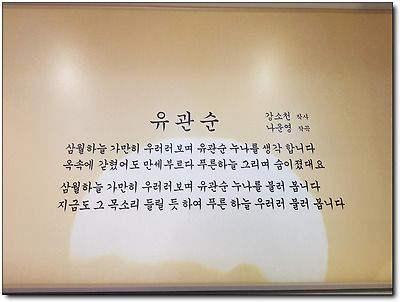 유관순
강소천 작사
나운영 작곡
삼월하늘 가만히 우러러보며 유관순 누나를 생각 합니다
옥속에 갇혔어도 만세부르다 푸른하늘 그리며 숨이졌대요
삼월하늘 가만히 우러러보며 유관순 누나를 불러 봅니다
지금도 그 목소리 들릴 듯 하여 푸른 하늘 우러러 불러 봅니다